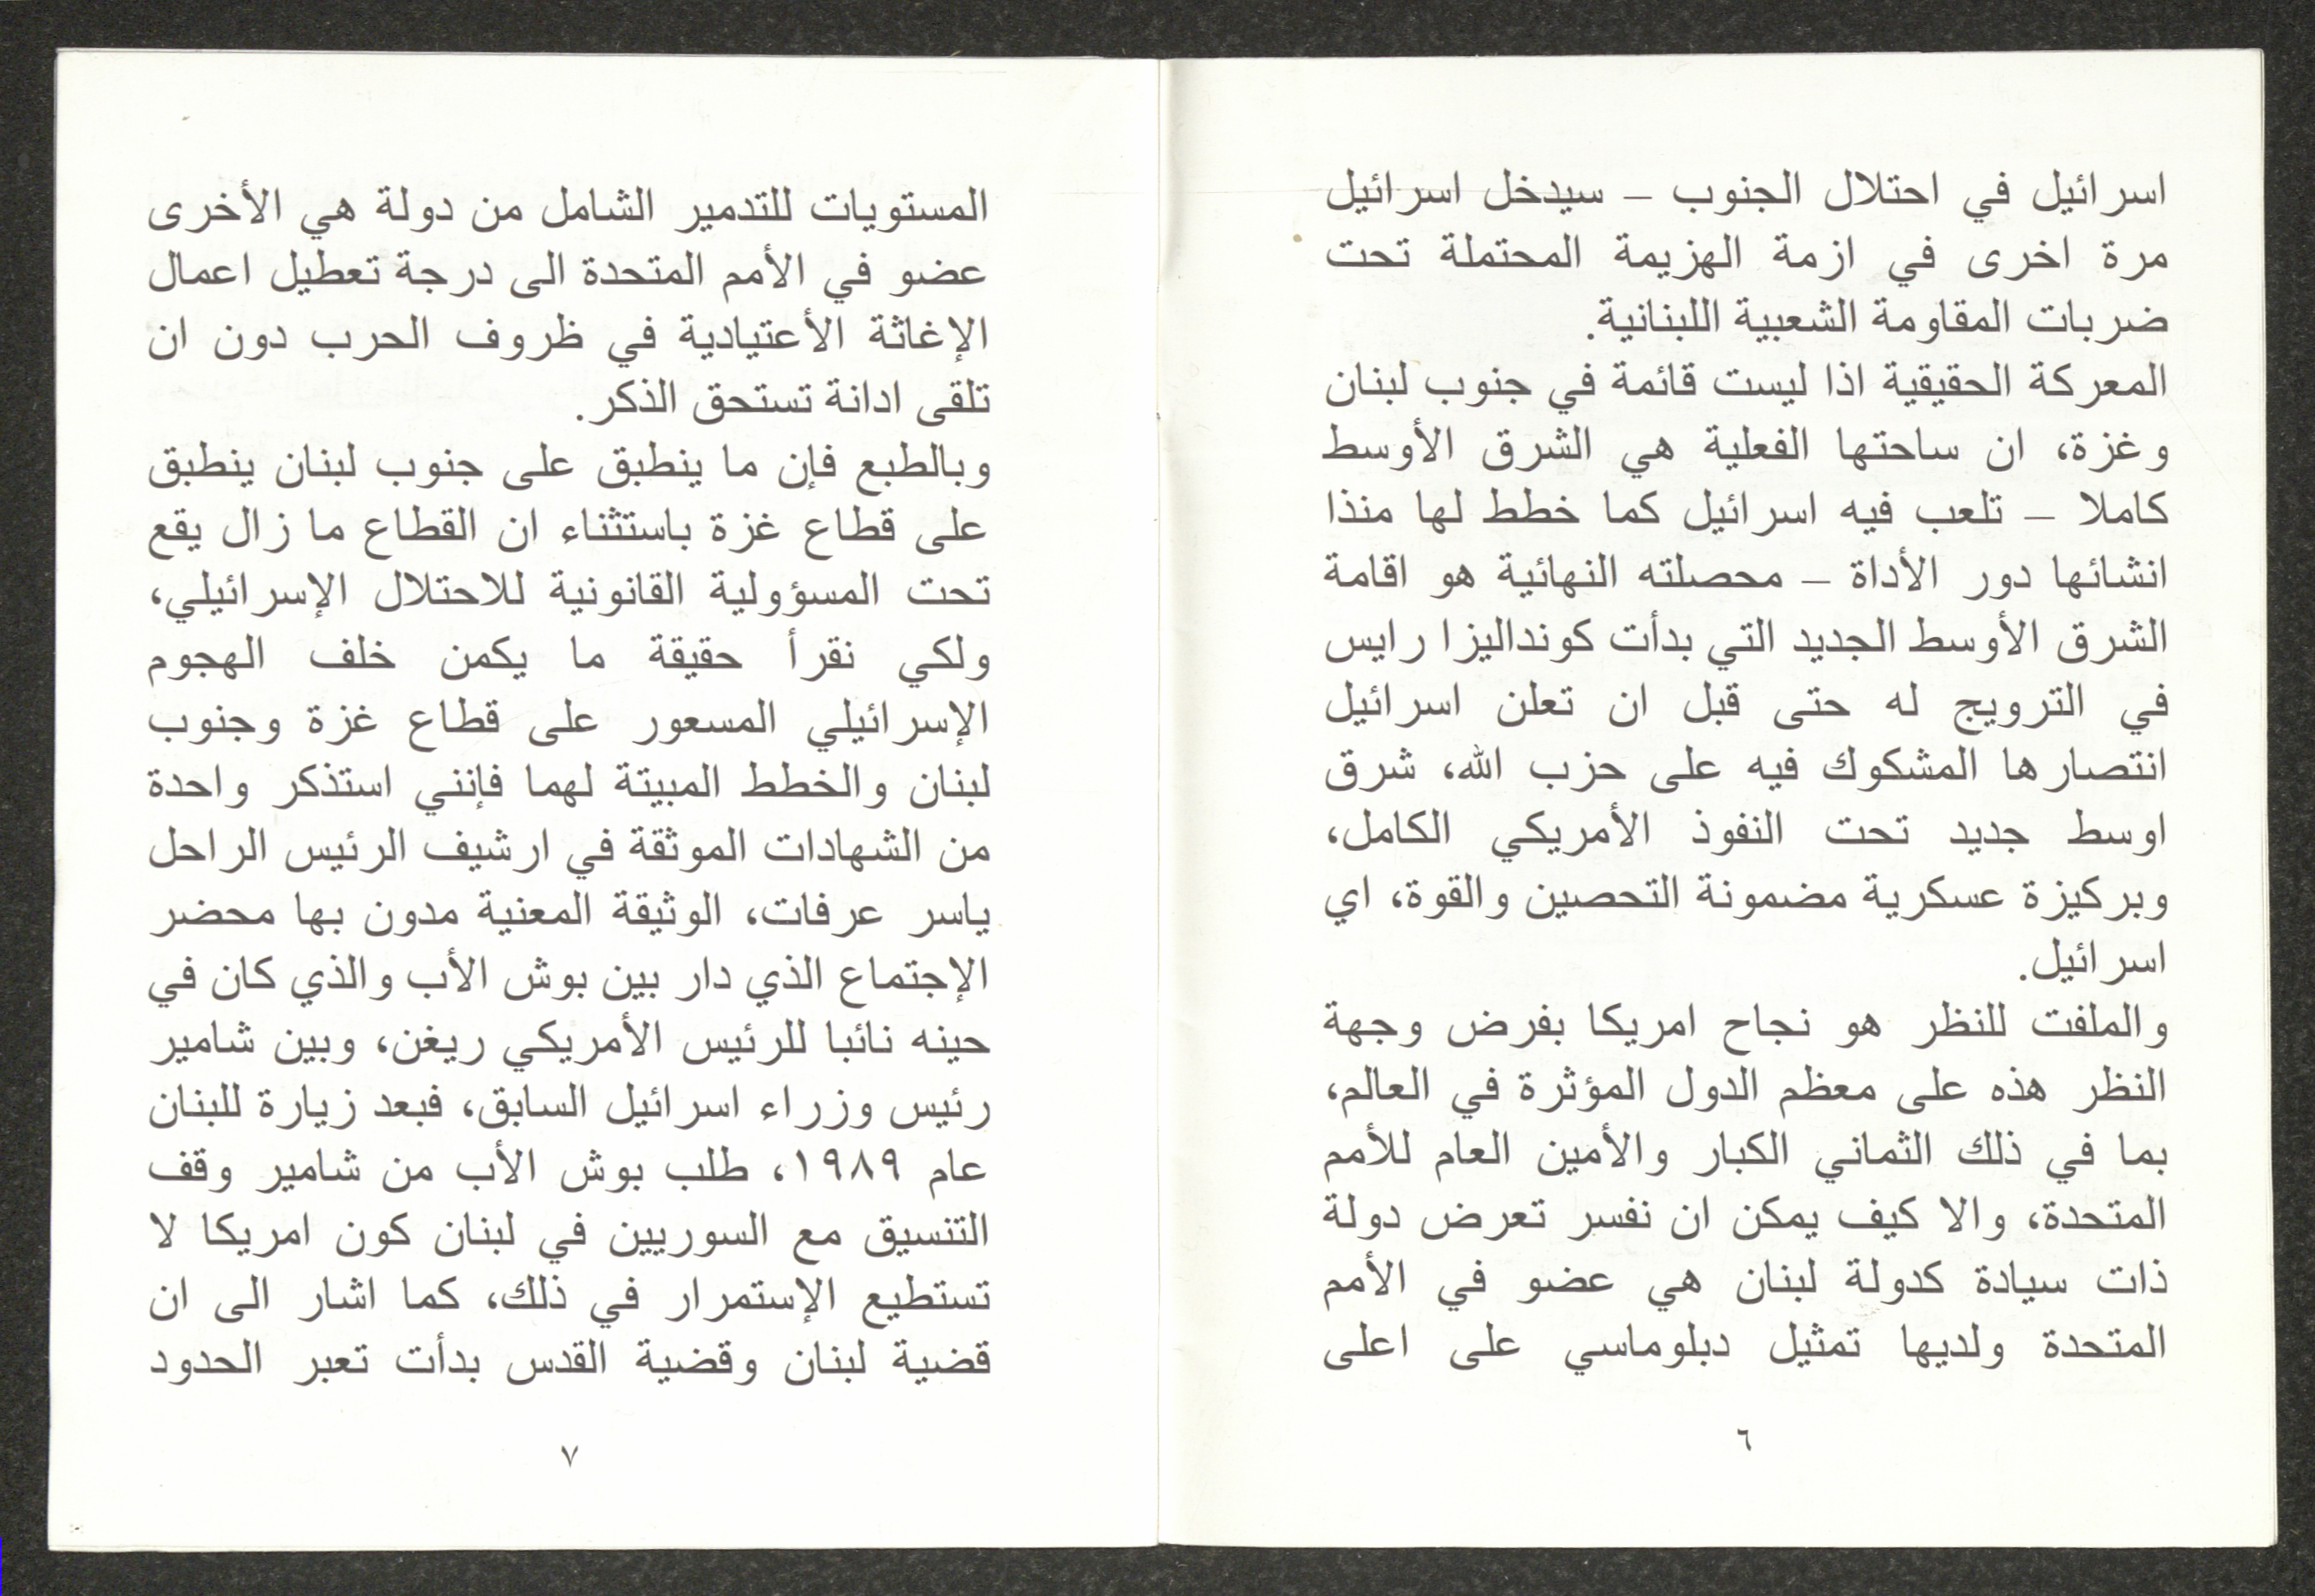 اسرائيل في احتلال الجنوب – سيدخل اسرائيل
مرة اخرى في ازمة الهزيمة المحتملة تحت
ضربات المقاومة الشعبية اللبنانية.
المعركة الحقيقية اذا ليست قائمة في جنوب لبنان
وغزة، ان ساحتها الفعلية هي الشرق الأوسط
كاملا – تلعب فيه اسرائيل كما خطط لها منذا
انشائها دور الأداة – محصلته النهائية هو اقامة
الشرق الأوسط الجديد التي بدأت كونداليزا رايس
في الترويج له حتى قبل ان تعلن اسرائيل
انتصارها المشكوك فيه على حزب الله، شرق
اوسط جديد تحت النفوذ الأمريكي الكامل،
وبركيزة عسكرية مضمونة التحصين والقوة، اي
اسرائيل.
والملفت للنظر هو نجاح امريكا بفرض وجهة
النظر هذه على معظم الدول المؤثرة في العالم،
بما في ذلك الثماني الكبار والأمين العام للأمم
المتحدة، والا كيف يمكن ان نفسر تعرض دولة
ذات سيادة كدولة لبنان هي عضو في الأمم
المتحدة ولديها تمثيل دبلوماسي على اعلى
٦
المستويات للتدمير الشامل من دولة هي الأخرى
عضو في الأمم المتحدة الى درجة تعطيل اعمال
الإغاثة الأعتيادية في ظروف الحرب دون ان
تلقى ادانة تستحق الذكر.
وبالطبع فإن ما ينطبق على جنوب لبنان ينطبق
على قطاع غزة باستثناء ان القطاع ما زال يقع
تحت المسؤولية القانونية للاحتلال الإسرائيلي،
ولكي نقرأ حقيقة ما يكمن خلف الهجوم
الإسرائيلي المسعور على قطاع غزة وجنوب
لبنان والخطط المبيتة لهما فإنني استذكر واحدة
من الشهادات الموثقة في ارشيف الرئيس الراحل
ياسر عرفات، الوثيقة المعنية مدون بها محضر
الإجتماع الذي دار بين بوش الأب والذي كان في
حينه نائبا للرئيس الأمريكي ريغن، وبين شامير
رئيس وزراء اسرائيل السابق، فبعد زيارة للبنان
عام ١٩٨٩، طلب بوش الأب من شامير وقف
التنسيق مع السوريين في لبنان كون امريكا لا
تستطيع الإستمرار في ذلك، كما اشار الى ان
قضية لبنان وقضية القدس بدأت تعبر الحدود
٧